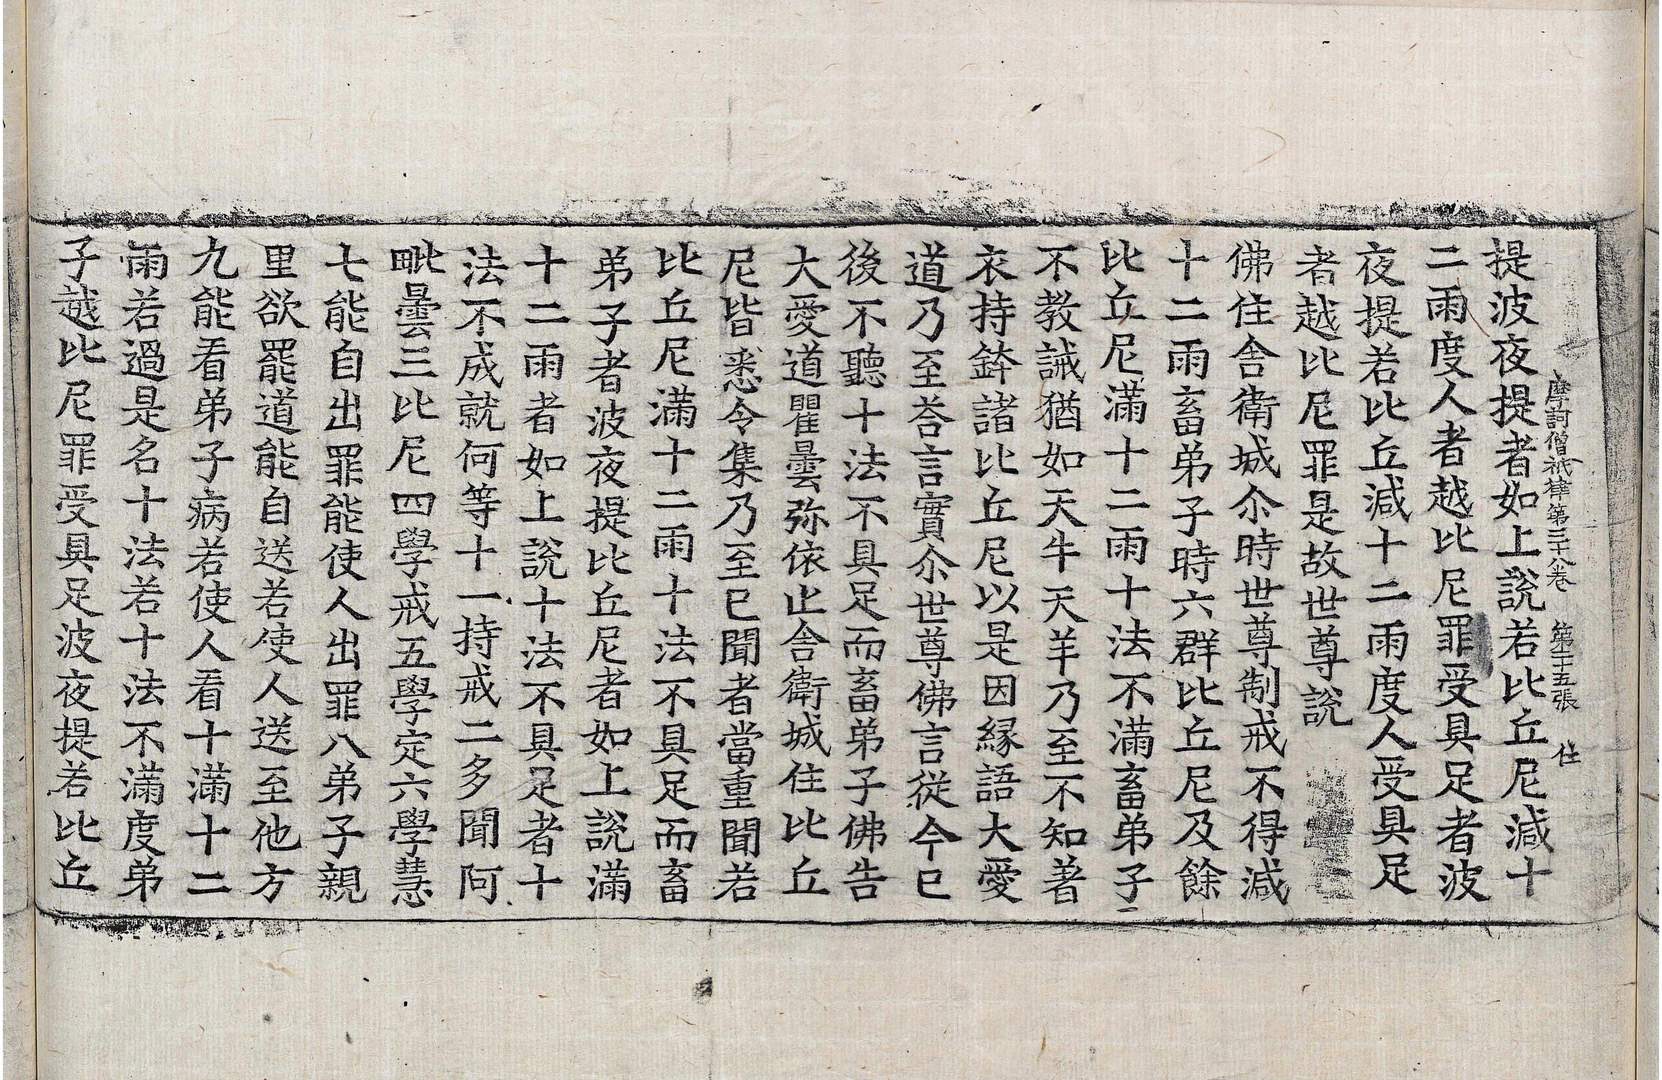 摩訶僧祇律第三十八卷　第二十五張　住
提波夜提者如上說若比丘尼減十
二雨度人者越比尼罪受具足者波
夜提若比丘減十二雨度人受具足
者越比尼罪是故世尊說
佛住舍衛城尒時世尊制戒不得減
十二雨畜弟子時六群比丘尼及餘
比丘尼滿十二雨十法不滿畜弟子
不教誡猶如天牛天羊乃至不知著
衣持鉢諸比丘尼以是因緣語大愛
道乃至荅言實尒世尊佛言從今已
後不聽十法不具足而畜弟子佛告
大愛道瞿曇弥依止舍衛城住比丘
尼皆悉令集乃至已聞者當重聞若
比丘尼滿十二雨十法不具足而畜
弟子者波夜提比丘尼者如上說滿
十二雨者如上說十法不具足者十
法不成就何等十一持戒二多聞阿
毗曇三比尼四學戒五學定六學慧
七能自出罪能使人出罪八弟子親
里欲罷道能自送若使人送至他方
九能看弟子病若使人看十滿十二
雨若過是名十法若十法不滿度弟
子越比尼罪受具足波夜提若比丘